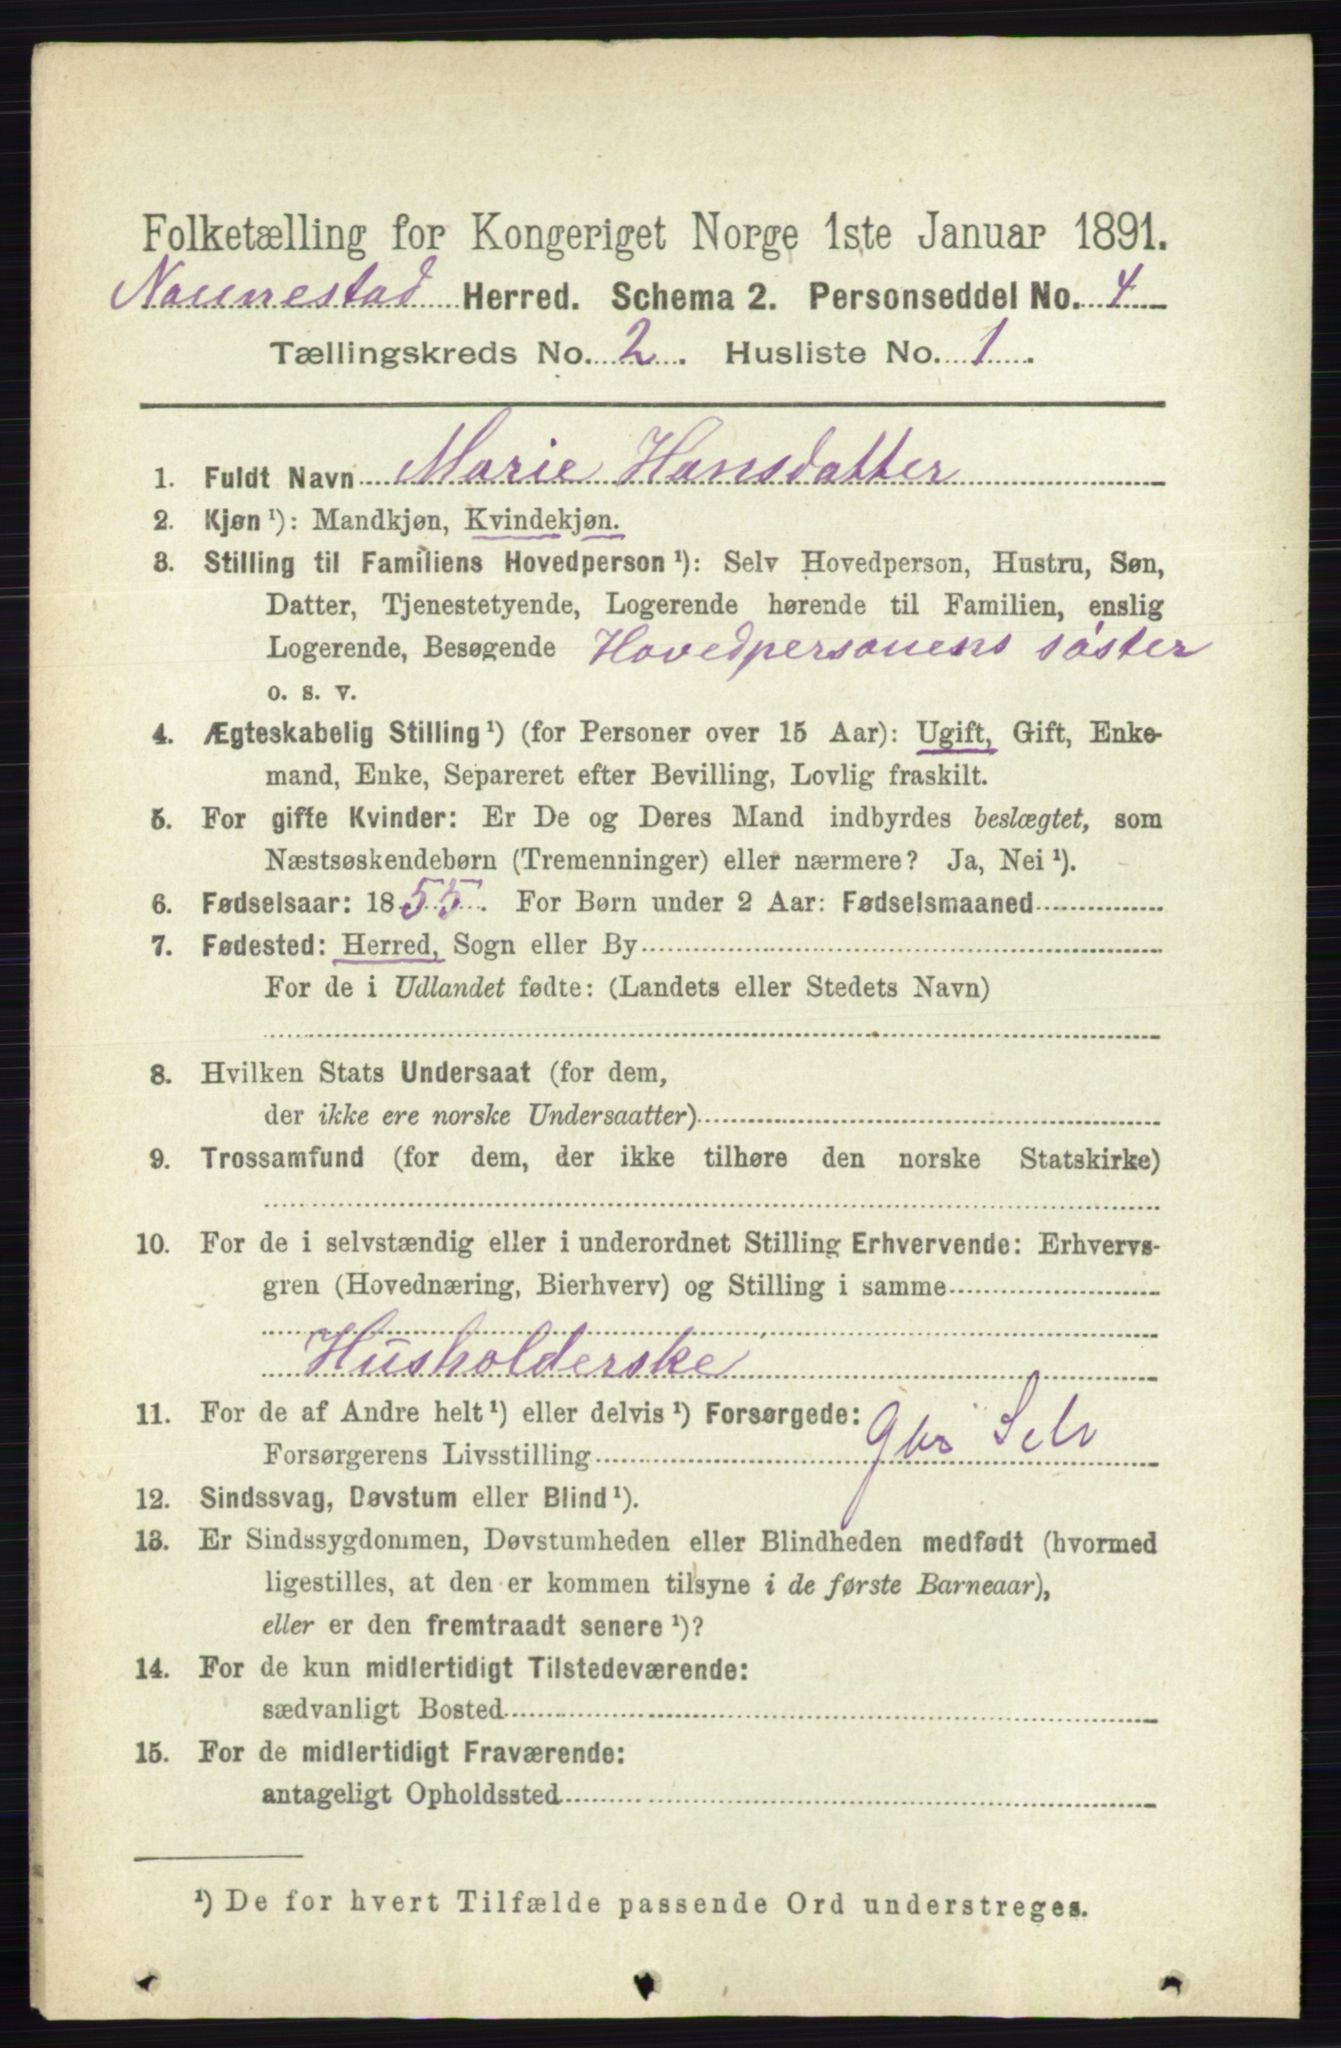 Folketælling for Kongeriget Norge 1ste Januar 1891.
Nannestad Herred. Schema 2. Personseddel No. 4
Tællingskreds No. 2. Husliste No. 1.
1. Fuldt Navn Marie Hansdatter
2. Kjøn¹): Mandkjøn, Kvindekjøn.
3. Stilling til Familiens Hovedperson¹): Selv Hovedperson, Hustru, Søn,
Datter, Tjenestetyende, Logerende hørende til Familien, enslig
Logerende, Besøgende Hovedpersonens söster
o. s. v.
4. Ægteskabelig Stilling¹) (for Personer over 15 Aar): Ugift, Gift, Enke-
mand, Enke, Separeret efter Bevilling, Lovlig fraskilt.
5. For gifte Kvinder: Er De og Deres Mand indbyrdes beslægtet, som
Næstsøskendebørn (Tremenninger) eller nærmere? Ja, Nei¹).
6. Fødselsaar: 1855. For Børn under 2 Aar: Fødselsmaaned
7. Fødested: Herred, Sogn eller By
For de i Udlandet fødte: (Landets eller Stedets Navn)
8. Hvilken Stats Undersaat (for dem,
der ikke ere norske Undersaatter)
9. Trossamfund (for dem, der ikke tilhøre den norske Statskirke)
10. For de i selvstændig eller i underordnet Stilling Erhvervende: Erhvervs-
gren (Hovednæring, Bierhverv) og Stilling i samme
Husholderske
11. For de af Andre helt¹) eller delvis¹) Forsørgede:
Forsørgerens Livsstilling Gbr Selv
12. Sindssvag, Døvstum eller Blind¹).
13. Er Sindssygdommen, Døvstumheden eller Blindheden medfødt (hvormed
ligestilles, at den er kommen tilsyne i de første Barneaar),
eller er den fremtraadt senere¹)?
14. For de kun midlertidigt Tilstedeværende:
sædvanligt Bosted
15. For de midlertidigt Fraværende:
antageligt Opholdssted
¹) De for hvert Tilfælde passende Ord understreges.